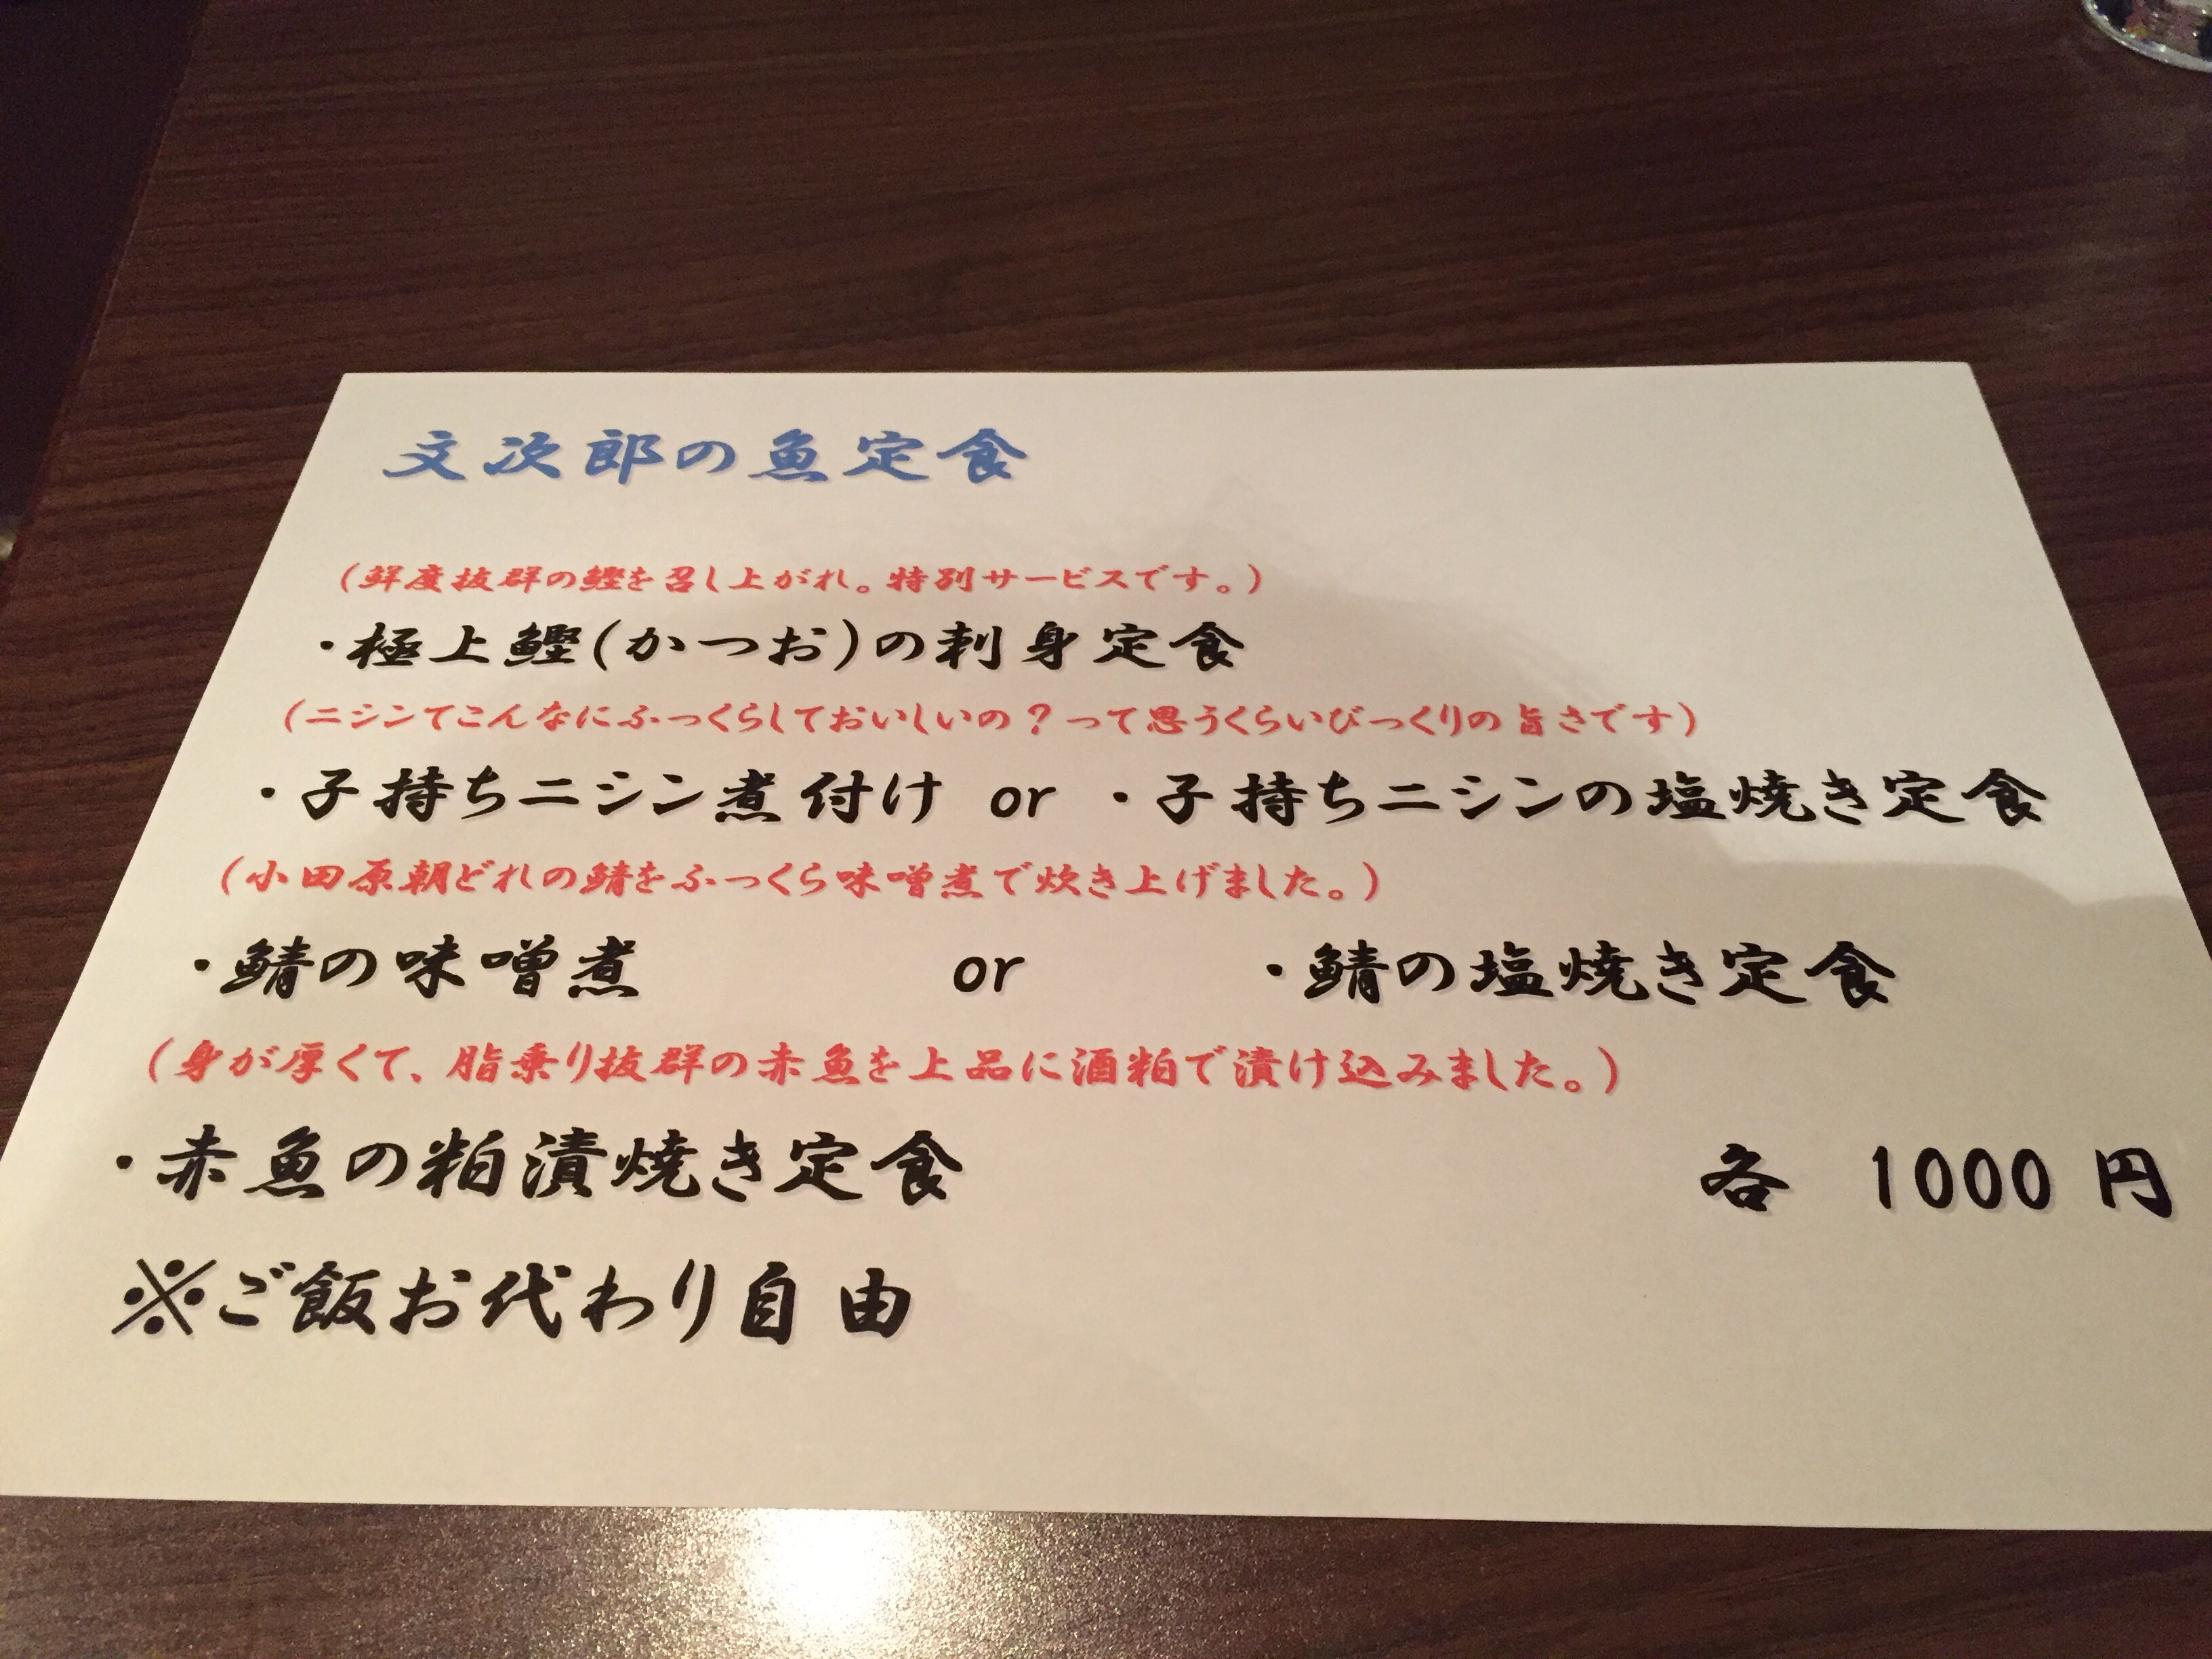 文次郎の魚定食
(鮮度抜群の鰹を召し上がれ。特別サービスです。)
・極上鰹(かつお)の刺身定食
(ニシンてこんなにふっくらしておいしいの？って思うくらいびっくりの旨さです)
・子持ちニシン煮付け or ・子持ちニシンの塩焼き定食
(小田原朝どれの鯖をふっくら味噌煮で炊き上げました。)
・鯖の味噌煮 or ・鯖の塩焼き定食
(身が厚くて、脂乗り抜群の赤魚を上品に酒粕で漬け込みました。)
・赤魚の粕漬焼き定食 各 1000 円
※ご飯お代わり自由